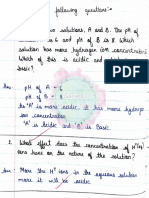 following questions :-
two solutions, A and B. The pH of
is 6 and pH of B is 8. Which
solution has more hydrogen ion concentration
Which of this is acidic and
basic?
Ans:- pH of A - 6
pH of B - 8
'A' is more acidic, it has more hydrogen
ion concentration
'A' is acidic and 'B' is basic.
2. What effect does the concentration of H+(aq)
ions have on the nature of the solution?
Ans:- More the H+ ions in the aqueous solution
more it will be acidic.